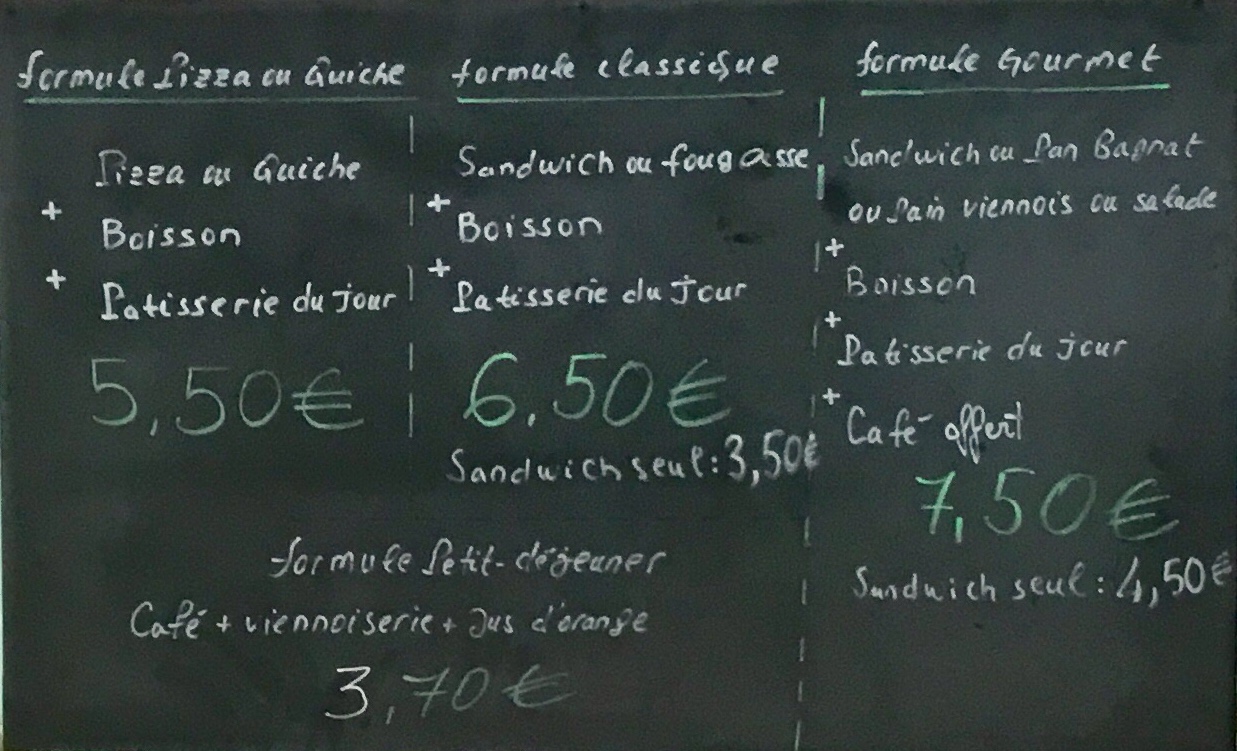 formule Pizza ou Quiche
Pizza ou Quiche
+ Boisson
+ Patisserie du jour
5,50€
formule classique
Sandwich ou fougasse
+ Boisson
+ Patisserie du jour
6,50€
Sandwich seul : 3,50€
formule Gourmet
Sandwich ou Pan Bagnat
ou Pain viennois ou salade
+ Boisson
+ Patisserie du jour
+ Café offert
7,50€
Sandwich seul : 4,50€
formule Petit-déjeuner
Café + viennoiserie + Jus d'orange
3,70€